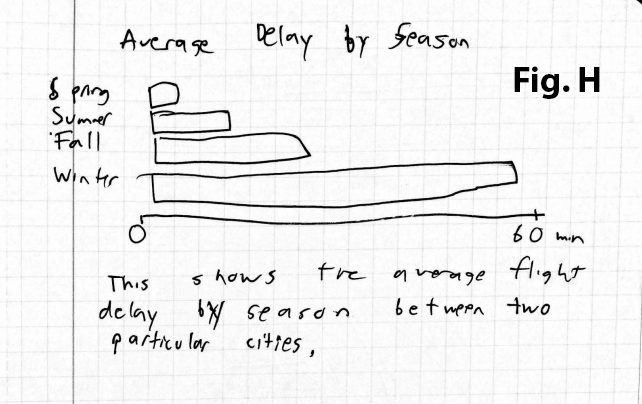 Average Delay by Season
Fig. H
Spring
Summer
Fall
Winter
0
60 min
This shows the average flight
delay by season between two
particular cities.